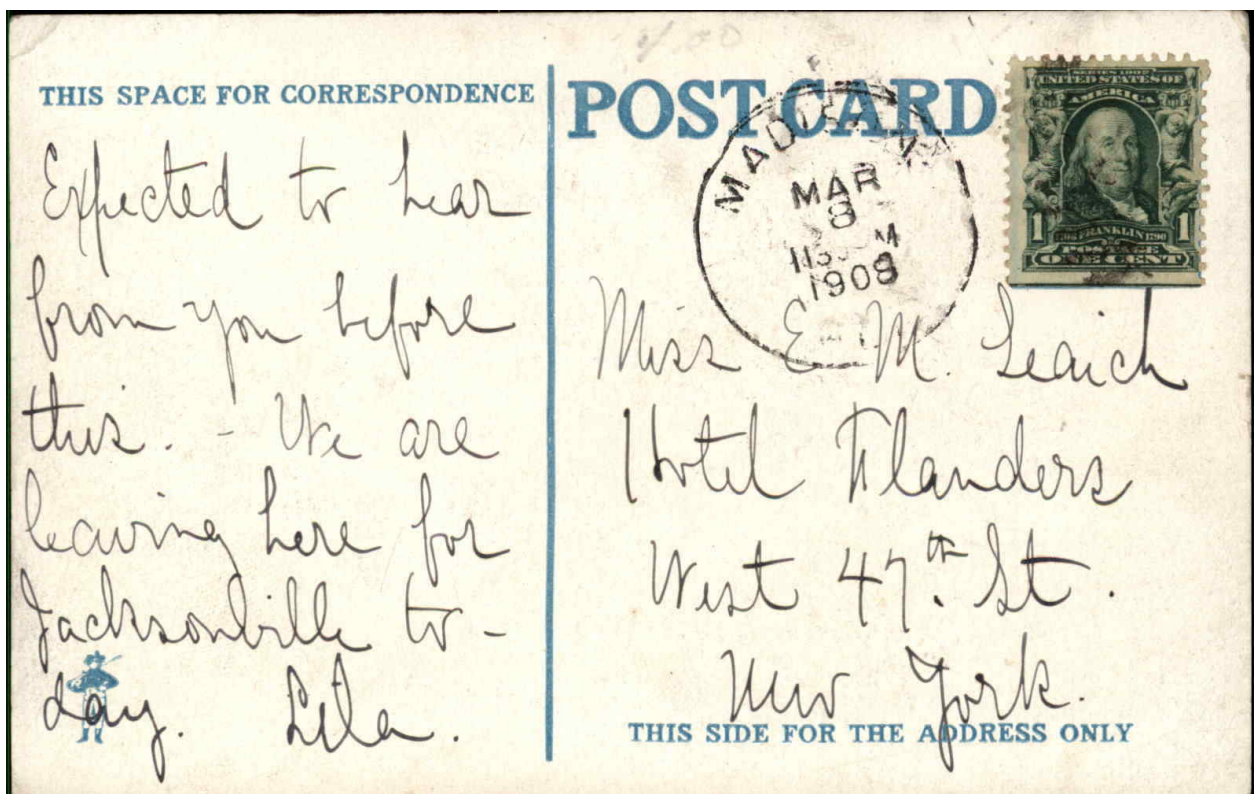 THIS SPACE FOR CORRESPONDENCE
Expected to hear
from you before
this. - We are
leaving here for
Jacksonville to-
day. Lila.
POST CARD
MADISON
MAR
8
1908
SERIES 1902
UNITED STATES OF
AMERICA
1 FRANKLIN 1790 1
POSTAGE
ONE CENT
Miss E. M. Leaich
Hotel Flanders
West 47th. St.
New York.
THIS SIDE FOR THE ADDRESS ONLY